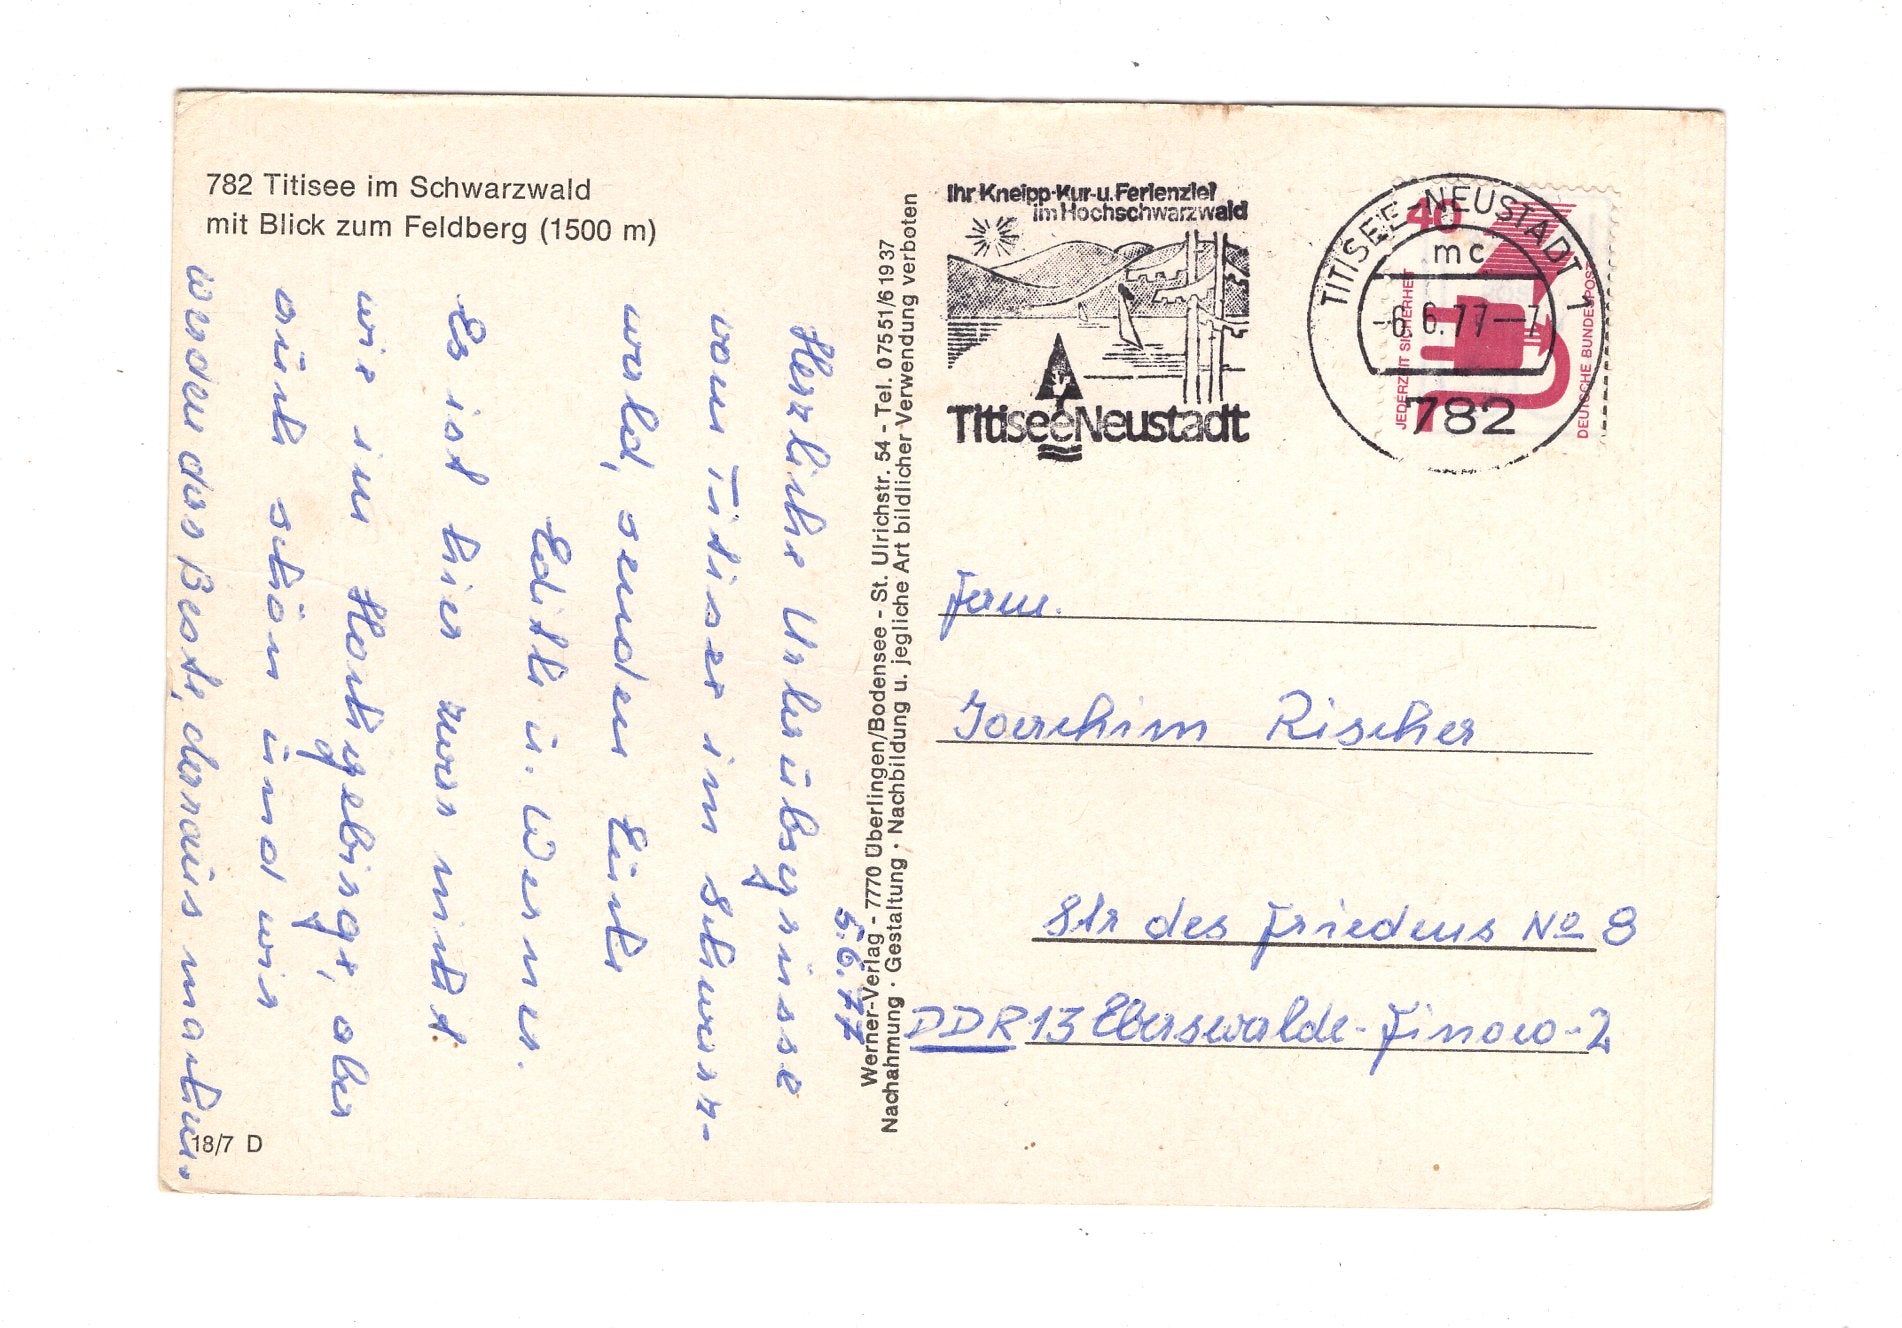 782 Titisee im Schwarzwald
mit Blick zum Feldberg (1500 m)
5.6.77
Herzliche Urlaubsgrüsse
vom Titisee im Schwarz-
wald, senden Euch
Edith u. Werner.
Es ist hier zwar nicht
wie im Hochgebirge, aber
auch schön und wir
werden das Beste, daraus machen.
18/7 D
Werner-Verlag - 7770 Überlingen/Bodensee - St. Ulrichstr. 54 - Tel. 07551/61937
Nachahmung · Gestaltung · Nachbildung u. jegliche Art bildlicher Verwendung verboten
Ihr Kneipp-Kur-u. Ferienziel
im Hochschwarzwald
TitiseeNeustadt
TITISEE-NEUSTADT 1
mc
-6.6.77--7
782
40
JEDERZEIT SICHERHEIT
DEUTSCHE BUNDESPOST
Fam.
Joachim Rischer
Str des Friedens No 8
DDR 13 Eberswalde-Finow-2